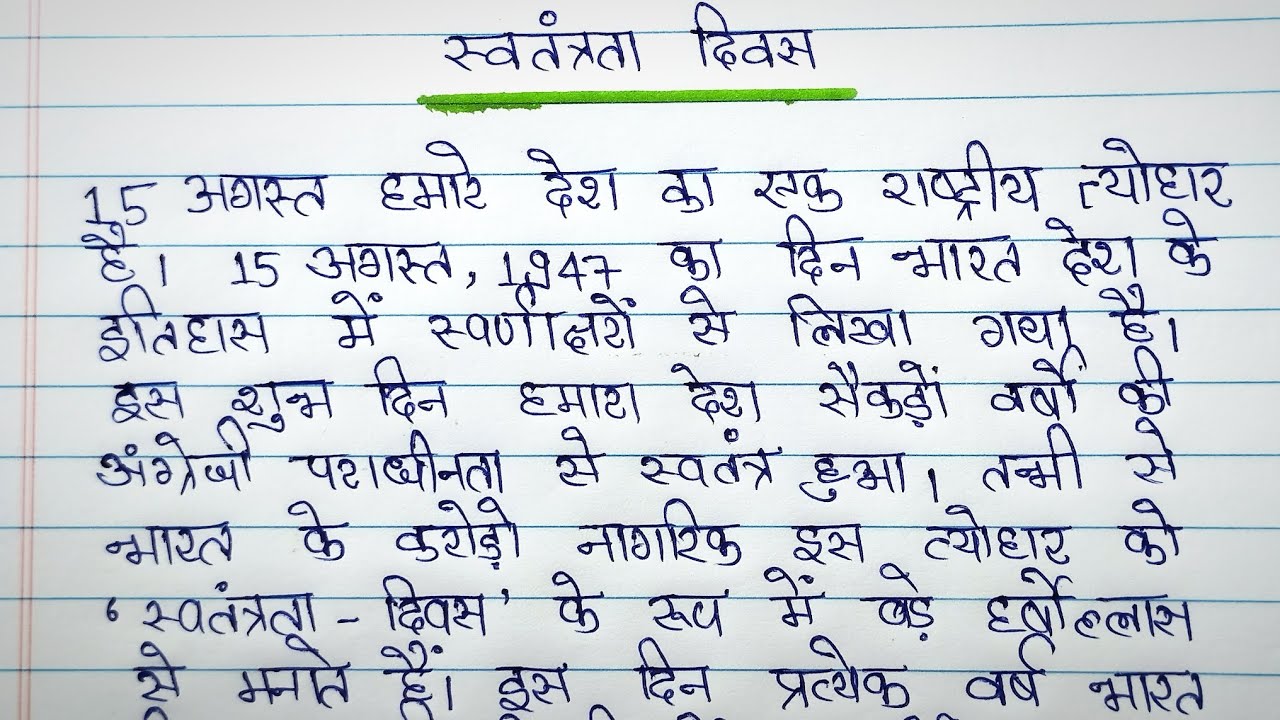 स्वतंत्रता दिवस
15 अगस्त हमारे देश का एक राष्ट्रीय त्योहार
है। 15 अगस्त, 1947 का दिन भारत देश के
इतिहास में स्वर्णाक्षरों से लिखा गया है।
इस शुभ दिन हमारा देश सैकड़ों वर्षों की
अंग्रेजी पराधीनता से स्वतंत्र हुआ। तभी से
भारत के करोड़ो नागरिक इस त्योहार को
'स्वतंत्रता - दिवस' के रूप में बड़े हर्षोल्लास
से मनाते हैं। इस दिन प्रत्येक वर्ष भारत